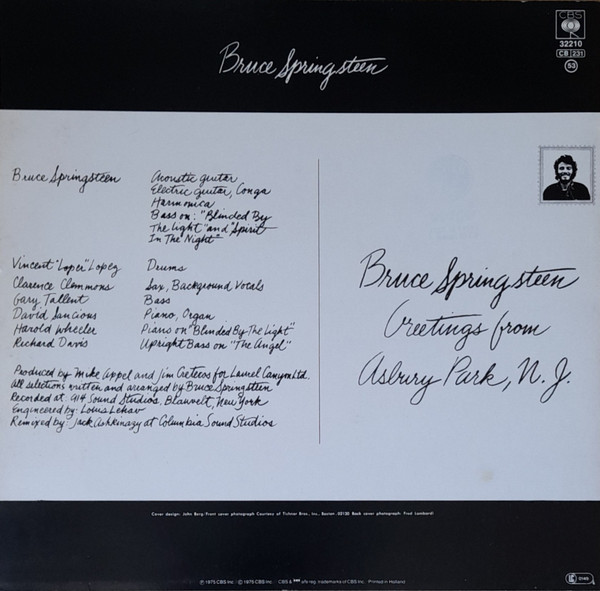 Bruce Springsteen
CBS
32210
CB 231
53
Bruce Springsteen Acoustic guitar
Electric guitar, Conga
Harmonica
Bass on: "Blinded By
The Light" and "Spirit
In The Night"
Vincent "Loper" Lopez Drums
Clarence Clemmons Sax, Background Vocals
Gary Tallent Bass
David Sancious Piano, Organ
Harold Wheeler Piano on "Blinded By The Light"
Richard Davis Upright Bass on "The Angel"
Produced by Mike Appel and Jim Cretecos for Laurel Canyon Ltd.
All selections written and arranged by Bruce Springsteen
Recorded at: 914 Sound Studios, Blauvelt, New York
Engineered by: Louis Lahav
Remixed by: Jack Ashkinazy at Columbia Sound Studios
Bruce Springsteen
Greetings from
Asbury Park, N.J.
Cover design: John Berg/Front cover photograph Courtesy of Tichnor Bros., Inc., Boston 02120 Back cover photograph: Fred Lombardi
℗ 1975 CBS Inc. / © 1975 CBS Inc. / CBS & are reg. trademarks of CBS Inc. Printed in Holland